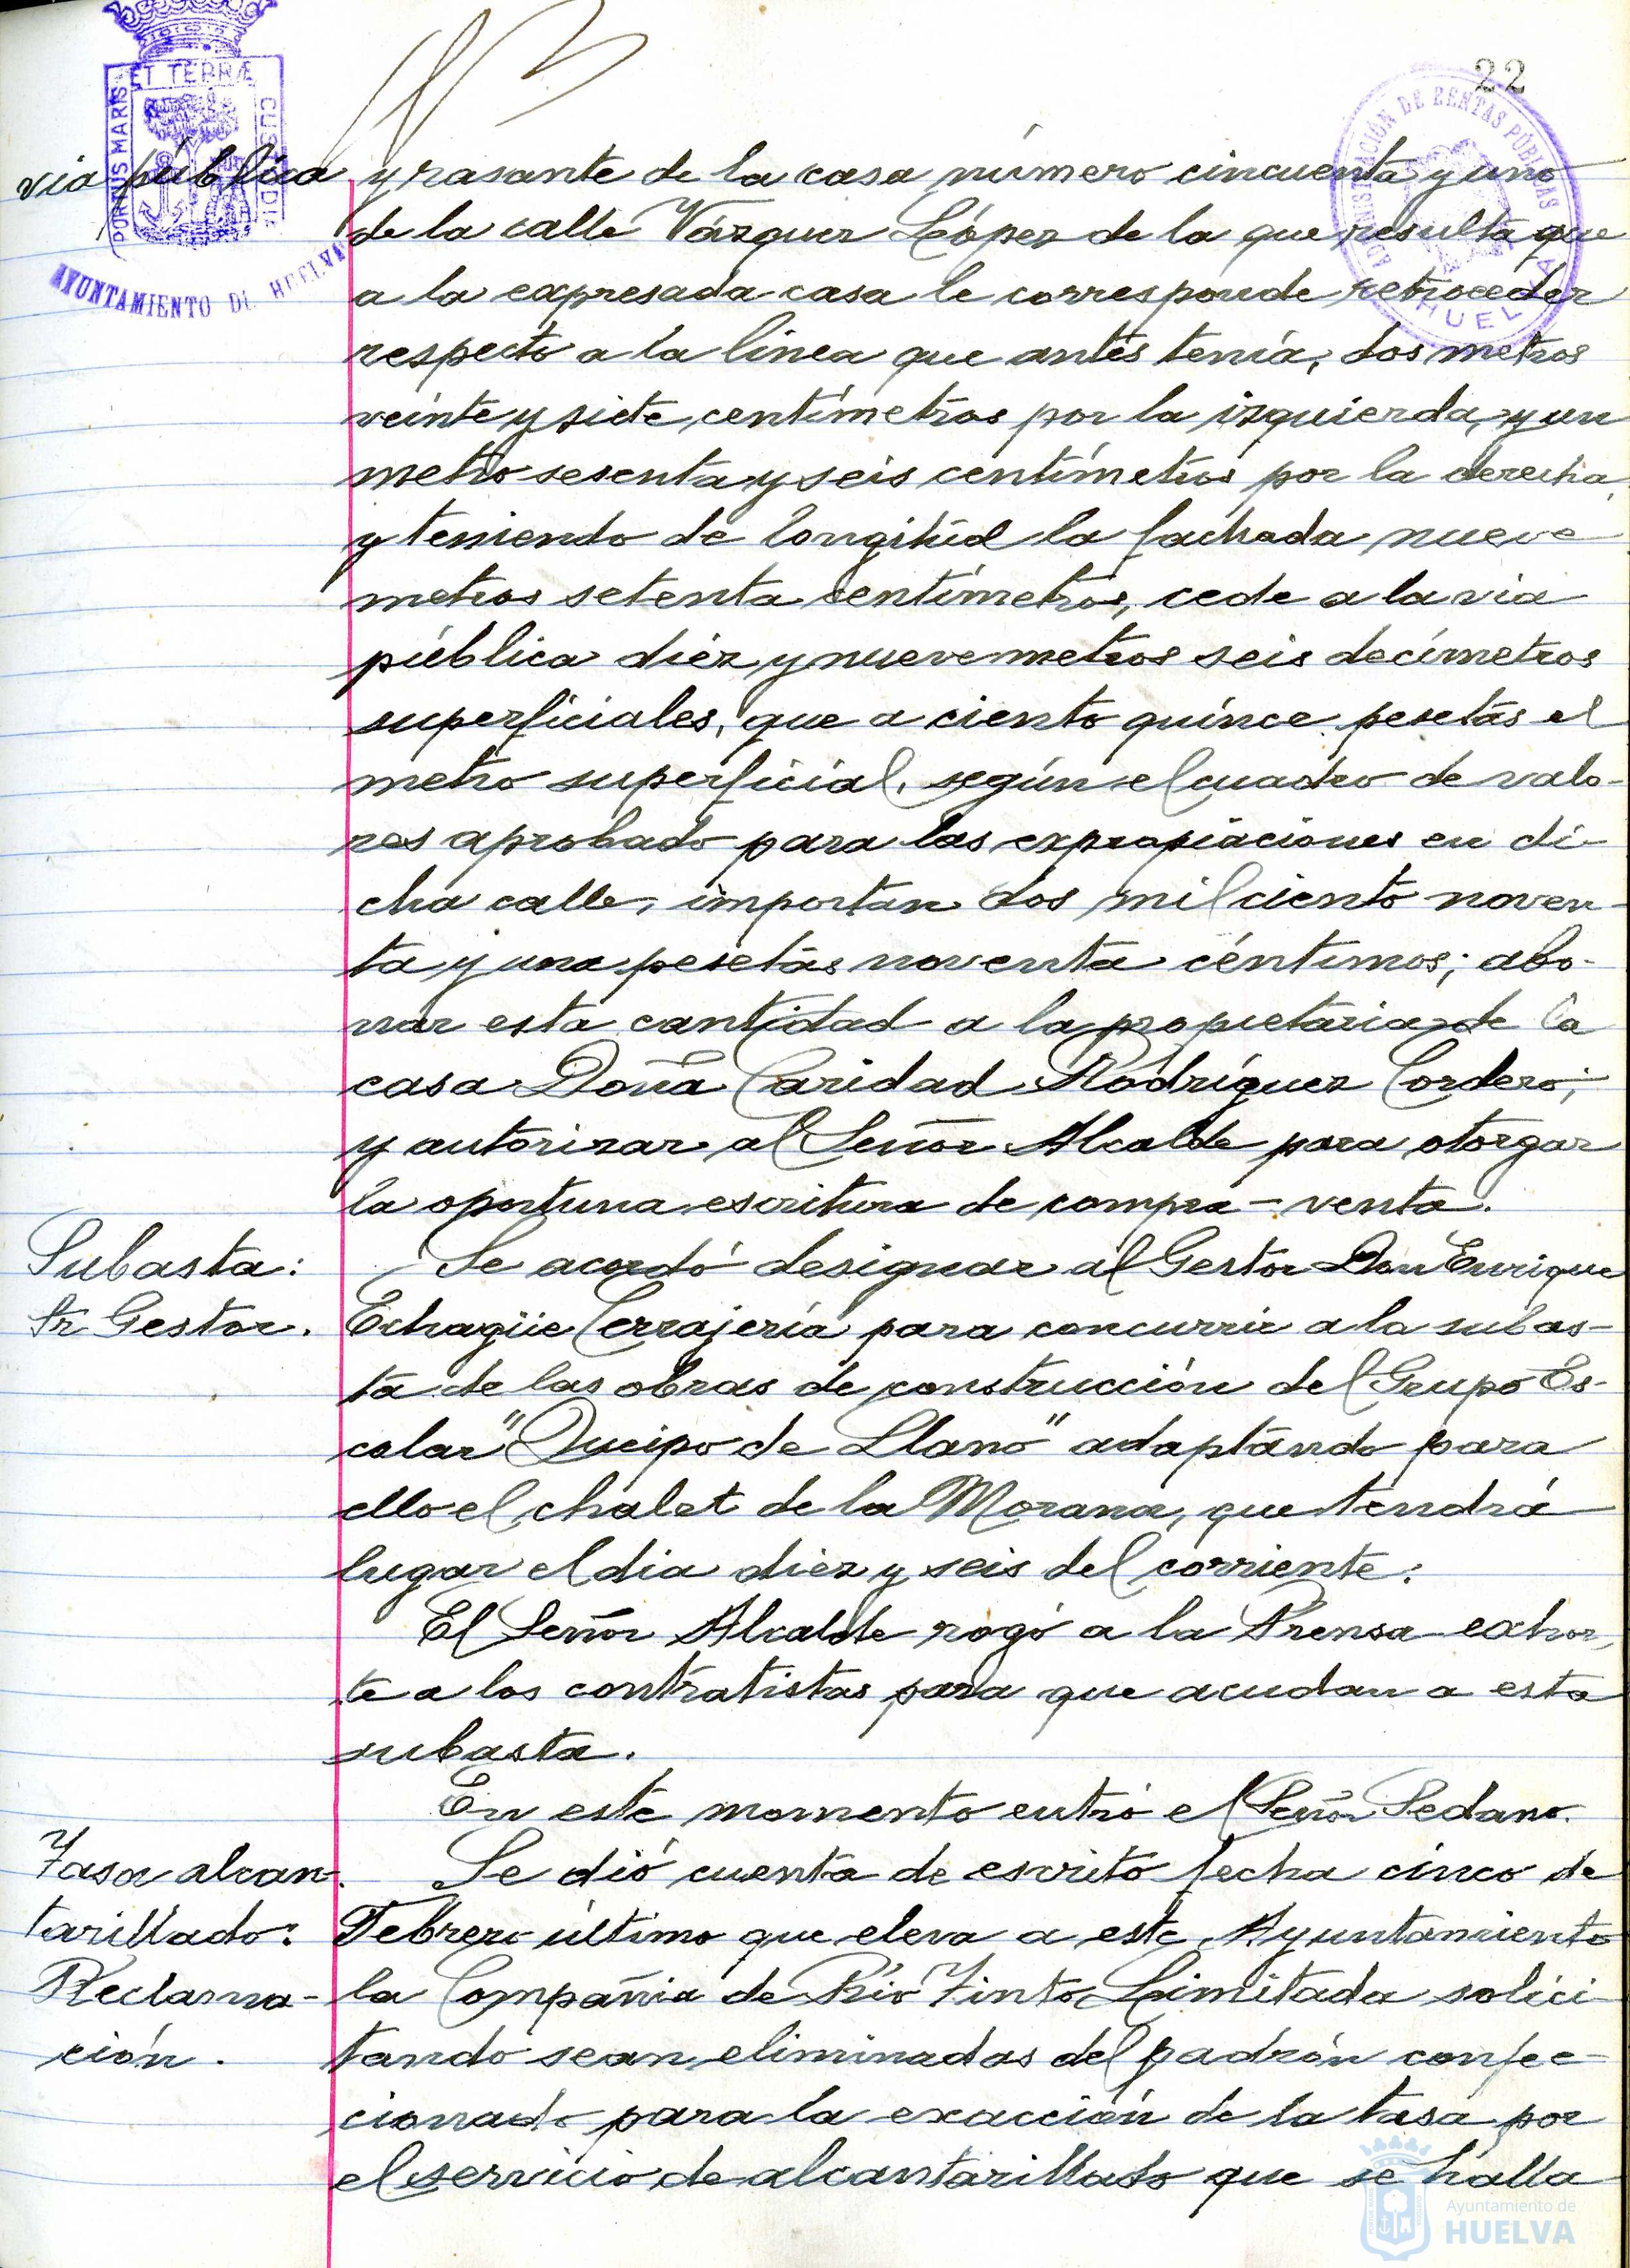 22
PORTUS MARIS ET TERRÆ CUSTODIA
AYUNTAMIENTO DE HUELVA
ADMINISTRACIÓN DE RENTAS PÚBLICAS
HUELVA
via pública
y rasante de la casa número cincuenta y uno
de la calle Vázquez López de la que resulta que
a la expresada casa le corresponde retroceder
respecto a la línea que antes tenía, dos metros
veinte y siete centímetros por la izquierda, y un
metro sesenta y seis centímetros por la derecha,
y teniendo de longitud la fachada nueve
metros setenta centímetros, cede a la via
pública diez y nueve metros seis decímetros
superficiales, que a ciento quince pesetas el
metro superficial, según el cuadro de valo-
res aprobado para las expropiaciones en di-
cha calle, importan dos mil ciento noven-
ta y una pesetas noventa céntimos; abo-
nar esta cantidad a la propietaria de la
casa Doña Caridad Rodríguez Cordero;
y autorizar al Señor Alcalde para otorgar
la oportuna escritura de compra-venta.
Subasta:
Sr Gestor.
Se acordó designar al Gestor Don Enrique
Echagüe Cerrajería para concurrir a la subas-
ta de las obras de construcción del Grupo Es-
colar "Queipo de Llano" adaptando para
ello el chalet de la Morana, que tendrá
lugar el dia diez y seis del corriente.
El Señor Alcalde rogó a la Prensa exhor-
te a los contratistas para que acudan a esta
subasta.
En este momento entró el Señor Sedano.
Tasa alcan-
tarillado:
Reclama-
ción.
Se dió cuenta de escrito fecha cinco de
Febrero último que eleva a este Ayuntamiento
la Compañia de Rio Tinto Limitada solici-
tando sean eliminadas del padrón confec-
cionado para la exacción de la tasa por
el servicio de alcantarillado que se halla
Ayuntamiento de
HUELVA